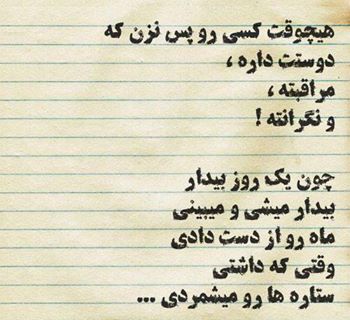 هیچوقت کسی رو پس نزن که
دوستت داره ،
مراقبته ،
و نگرانته !
چون یک روز بیدار
بیدار میشی و میبینی
ماه رو از دست دادی
وقتی که داشتی
ستاره ها رو میشمردی ...